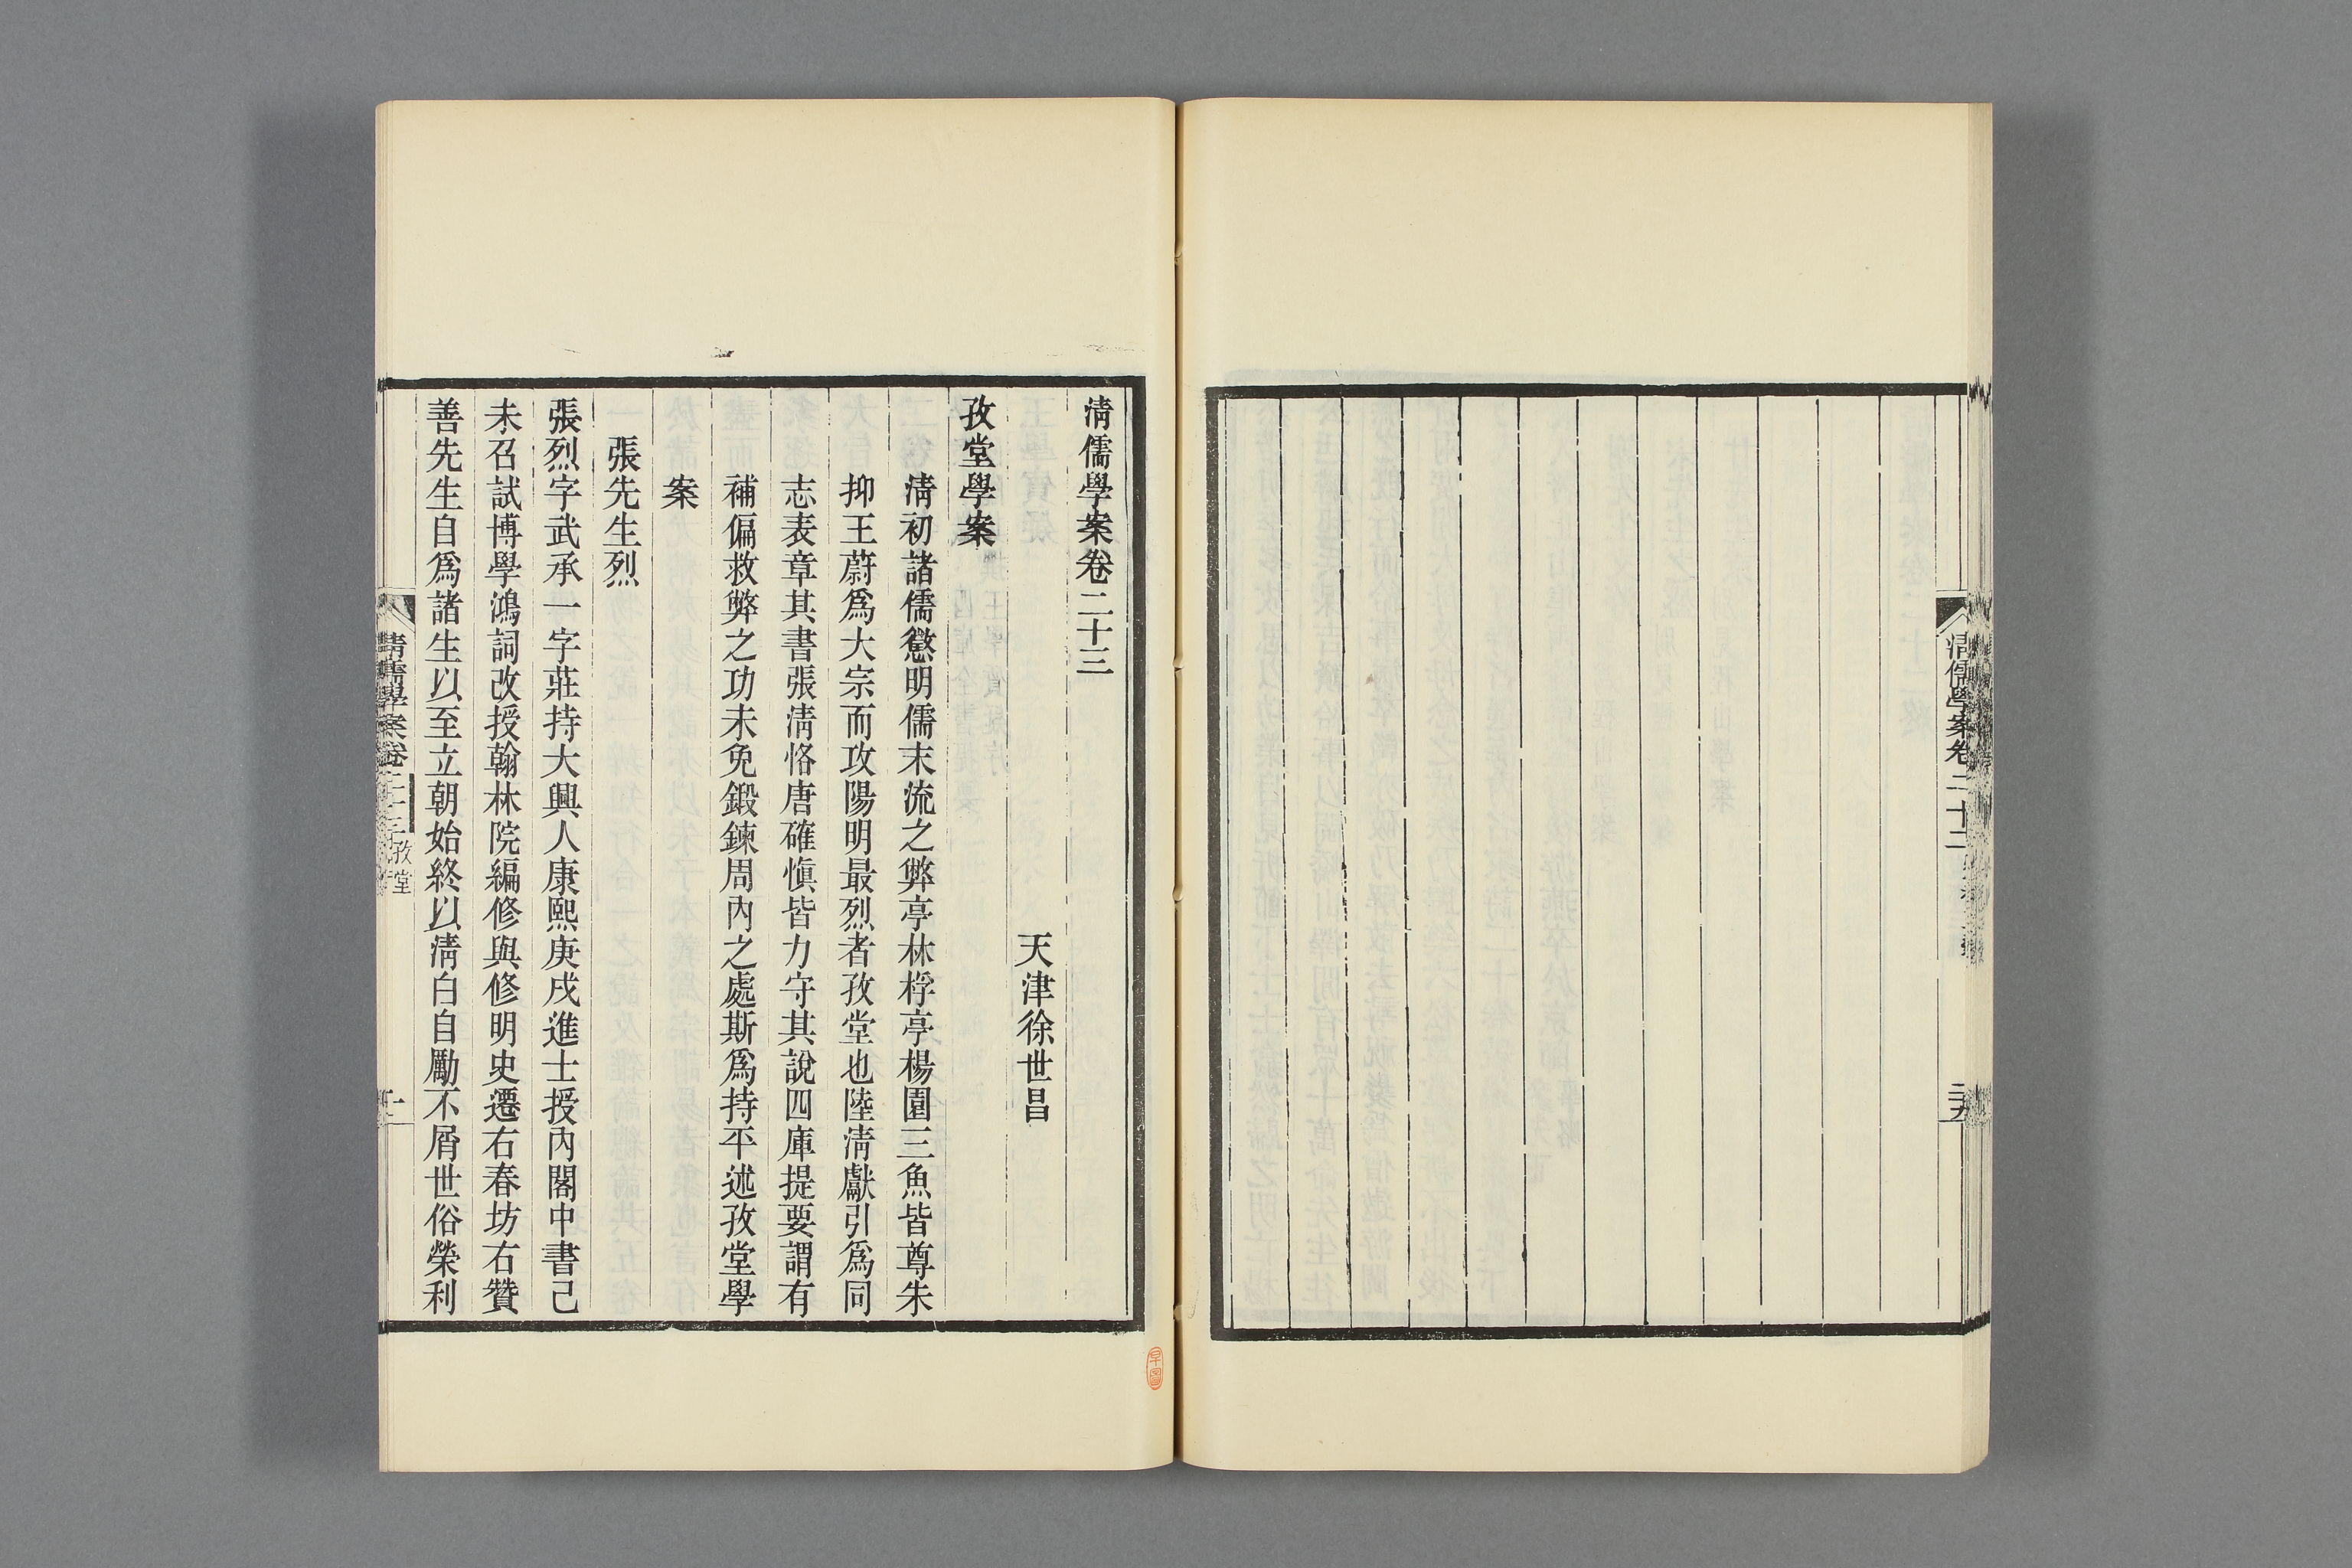 清儒學案卷二十二
清儒學案卷二十三
天津徐世昌
孜堂學案
清初諸儒懲明儒末流之弊亭林桴亭楊園三魚皆尊朱
抑王蔚爲大宗而攻陽明最烈者孜堂也陸清獻引爲同
志表章其書張清恪唐確愼皆力守其說四庫提要謂有
補偏救弊之功未免鍛鍊周內之處斯爲持平述孜堂學
案
張先生烈
張烈字武承一字莊持大興人康熙庚戌進士授內閣中書己
未召試博學鴻詞改授翰林院編修與修明史遷右春坊右贊
善先生自爲諸生以至立朝始終以清白自勵不屑世俗榮利
清儒學案卷二十三 孜堂
一